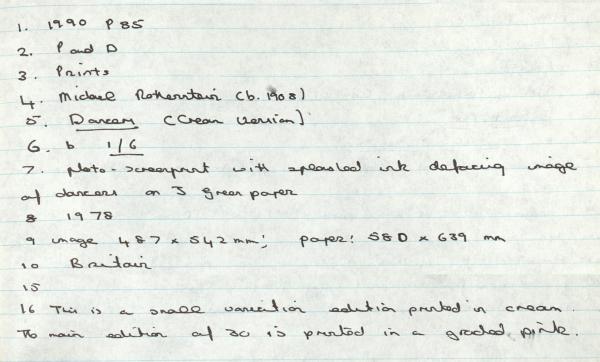 1. 1990 P 85
2. P and D
3. Prints
4. Michael Rothenstein (b. 1908)
5. Dancers (Cream Version)
6. b 1/6
7. photo-screenprint with splashed ink defacing image
of dancers on J green paper
8 1978
9 image 487 x 542 mm; paper: 580 x 639 mm
10 Britain
15
16 This is a small variation edition printed in cream.
Th main edition of 30 is printed in a graded pink.